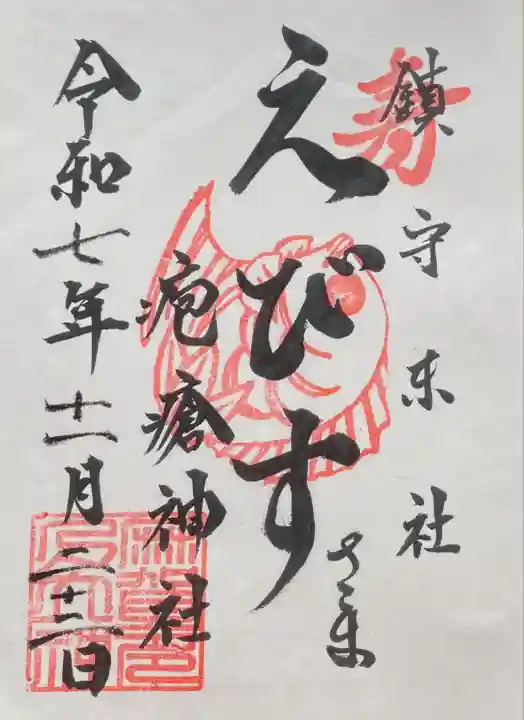 鎮守末社
寿
えびすさま
疱瘡神社
令和七年十一月二十二日